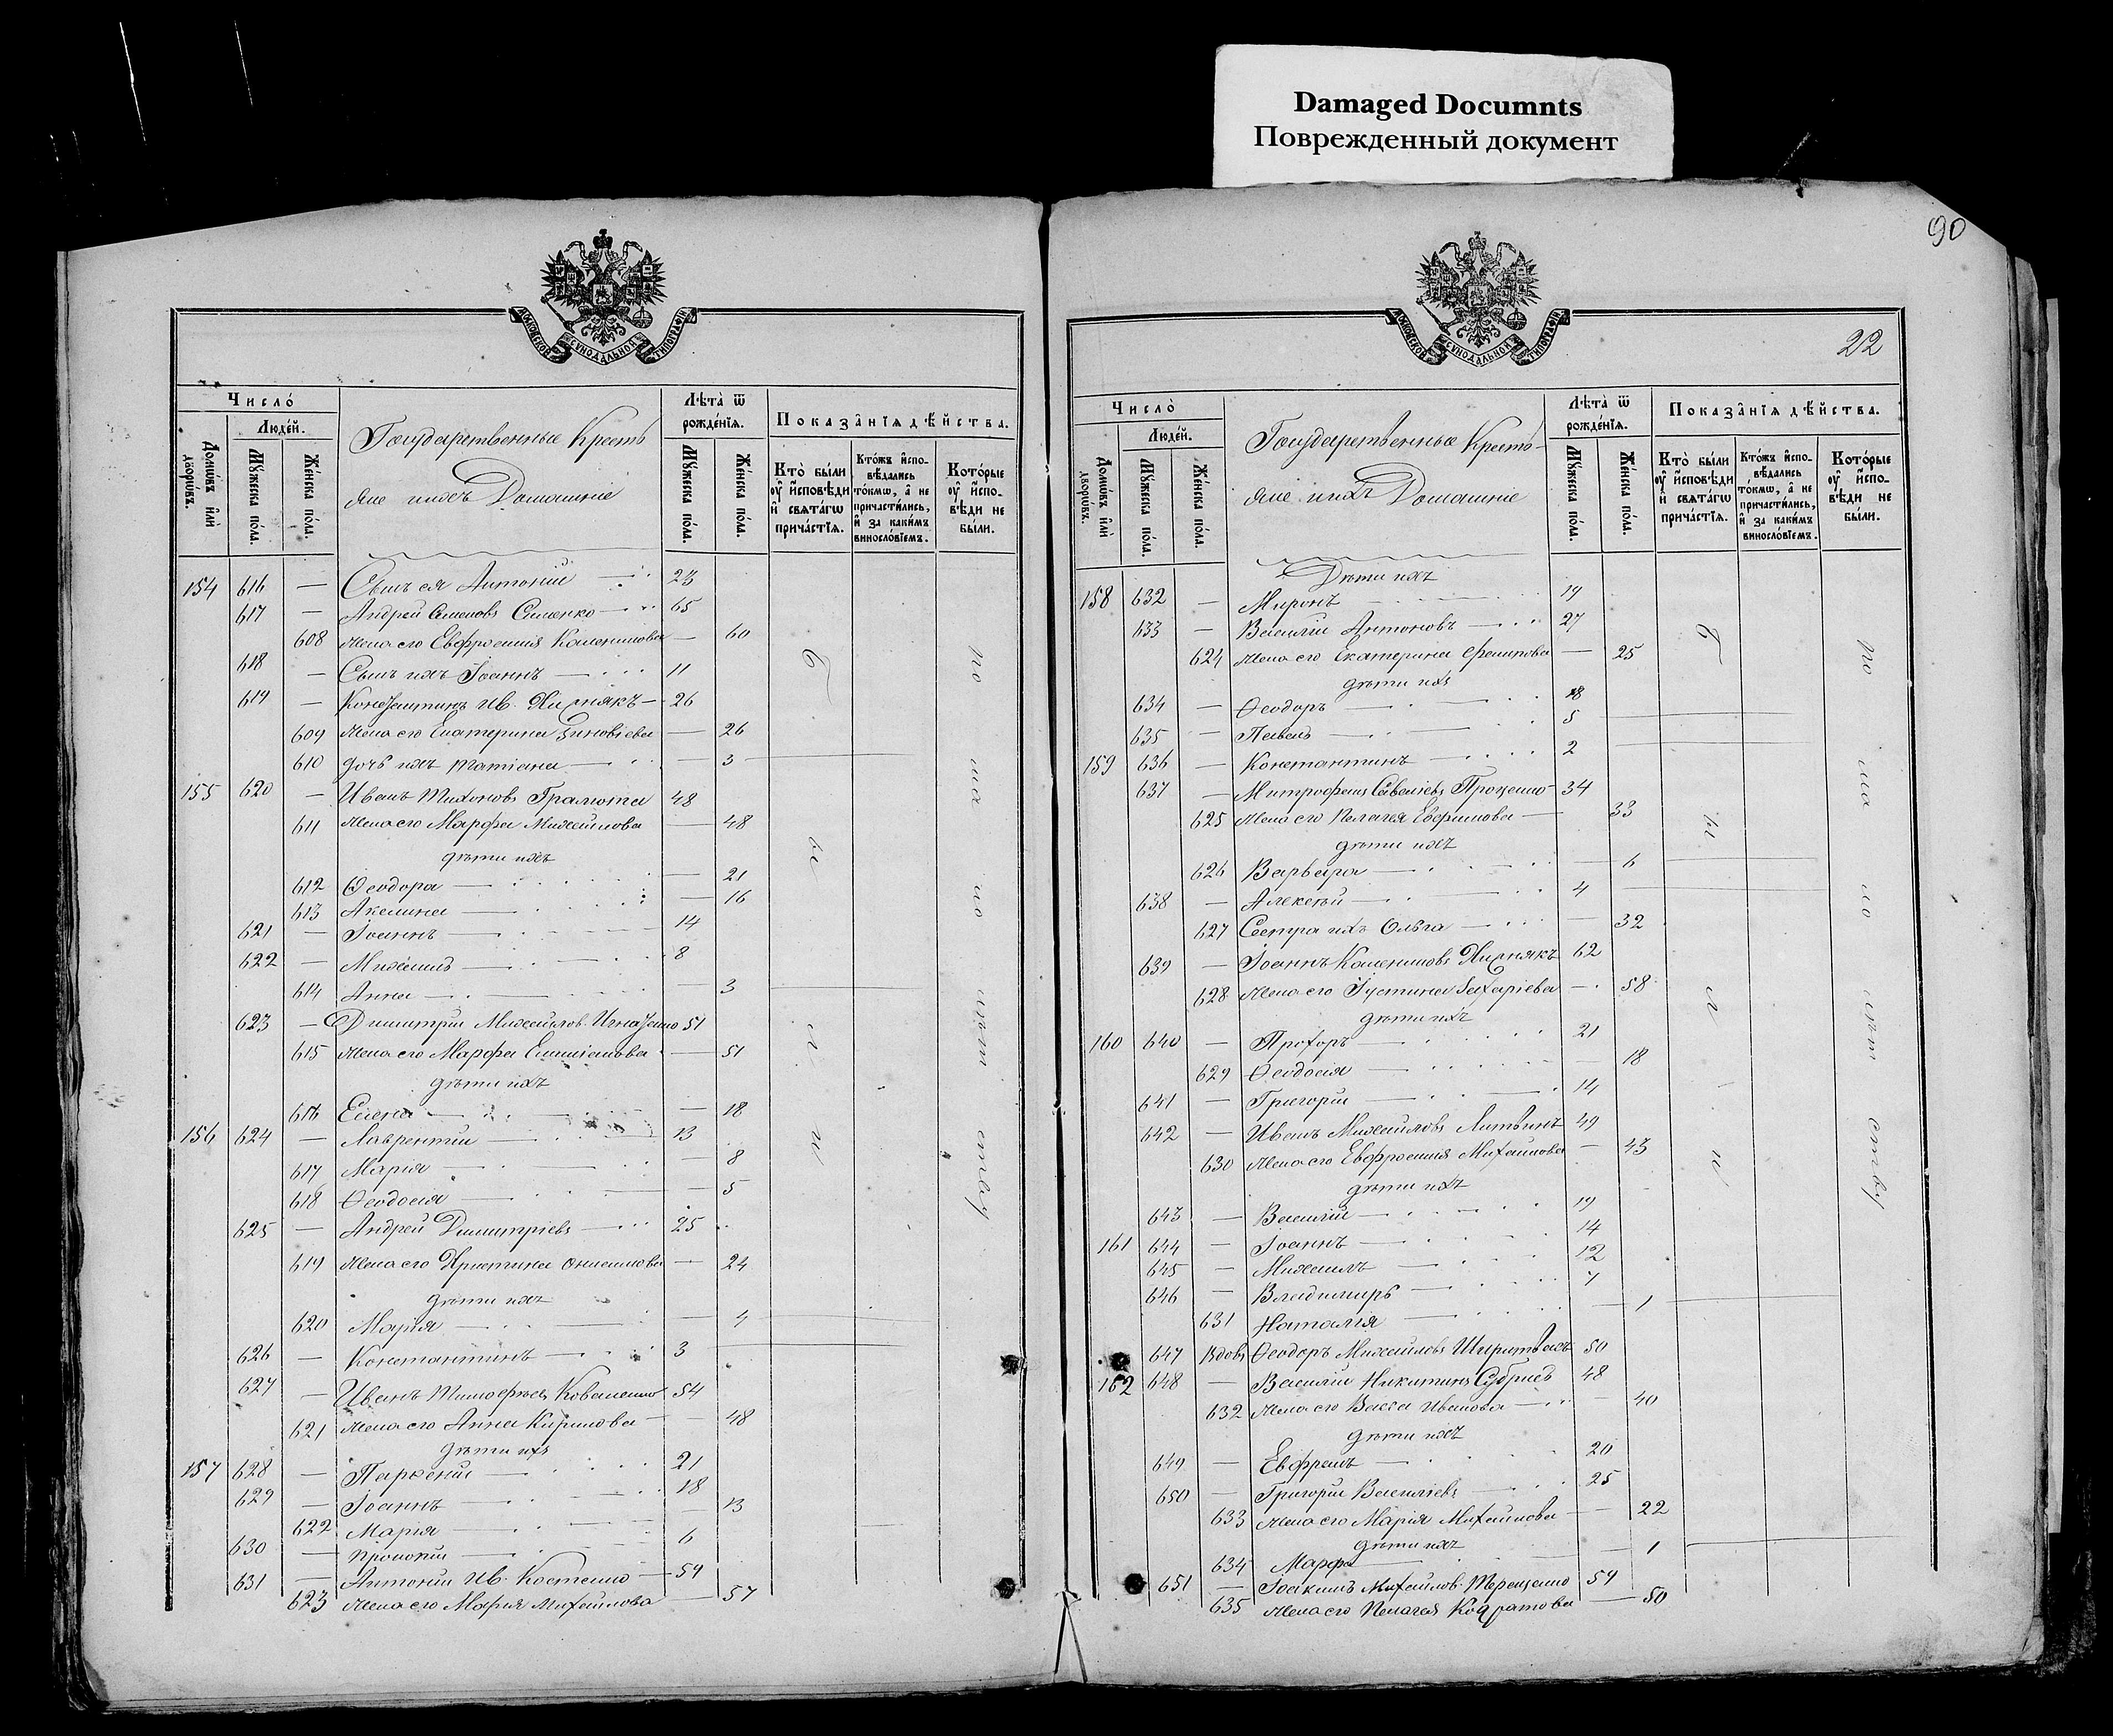 Damaged Documnts
Поврежденный документ
90
22
Московской Сѵнодальной Типографіи
Число́
Люде́й.
Домѡ́въ и҆лѝ дворѡ́въ.
Мꙋ́жеска по́ла.
Же́нска по́ла.
Государственные кресть
яне и ихъ Домашніе
Лѣта̀ ѿ рожде́нїѧ.
Мꙋ́жеска по́ла.
Же́нска по́ла.
Показа̂нїѧ дѣ́йства.
Кто̀ бы́ли ᲂу҆ и҆́сповѣди и҆ свѧта́гѡ прича́стїѧ.
Кто́жъ и҆спо­вѣ́дались то́кмѡ, а҆ не причасти́лись, и҆ за каки́мъ виносло́вїемъ.
Кото́рые ᲂу҆ и҆́споѣди не бы́ли.
154 616 — Сынъ ея Антоній — 23
617 — Андрей Семеновъ Семенко — 65
608 Жена его Евфросинія Калениковна — 60
618 — Сынъ ихъ Іоаннъ — 11
619 — Константинъ Ив. Хирнякъ — 26
609 Жена его Екатерина Зиновіева — 26
610 дочь ихъ Татіана — 3
155 620 — Иванъ Тихоновъ Грамота 48
611 Жена его Марфа Михайлова — 48
дѣти ихъ
612 Ѳеодора — 21
613 Акилина — 16
621 — Іоаннъ — 14
622 — Михаилъ — 8
614 Анна — 3
623 — Димитрій Михайлов. Игнатенко 51
615 Жена его Марфа Емиліанова — 51
дѣти ихъ
616 Елена — 18
156 624 — Лаврентій — 13
617 Марія — 8
618 Ѳеодосія — 5
625 — Андрей Димитріевъ — 25
619 Жена его Христина Онисимова — 24
дѣти ихъ
620 Марія — 4
626 — Константинъ — 3
627 — Иванъ Тимофѣевъ Коваленко 54
621 Жена его Анна Кирилова — 48
дѣти ихъ
157 628 — Парѳеній — 21
629 — Іоаннъ — 18
622 Марія — 13
630 — Прокопій — 6
631 — Антоній Ив. Костенко — 59
623 Жена его Марія Михайлова — 57
Б ы л и
по мало лѣтству
Число̀
Люде́й.
Домѡ́въ и҆лѝ дворѡ́въ.
Мꙋ́жеска по́ла.
Же́нска по́ла.
Государственные Кресть-
яне и ихъ Домашніе
Лѣта̀ ѿ рожде́нїѧ.
Мꙋ́жеска по́ла.
Же́нска по́ла.
Показа̂нїѧ дѣ́йства.
Кто̀ бы́ли ᲂу҆ и҆́сповѣди и҆ свѧта́гѡ прича́стїѧ.
Кто́жъ и҆спо­вѣ́дались то́кмѡ, а҆ не причасти́лись, и҆ за каки́мъ виносло́вїемъ.
Кото́рые ᲂу҆ и҆́сповѣди не бы́ли.
Дѣти ихъ
158 632 — Миронъ 19
633 — Василій Антоновъ — 27
624 Жена его Екатерина — 25
дѣти ихъ
634 — Ѳеодоръ — 8
635 — Павелъ — 5
159 636 — Константинъ — 2
637 — Митрофанъ Савеліевъ Проценко 34
625 Жена его Пелагея Евфимова — 33
дѣти ихъ
626 Варвара — 6
638 — Алексѣй — 4
627 Сестра ихъ Ольга — 32
639 — Іоаннъ Калениковъ Хирнякъ 62
628 Жена его Іустина Захаріева — 58
дѣти ихъ
160 640 — Прохоръ — 21
629 Ѳеодосія — 18
641 — Григорій — 14
642 — Иванъ Михайловъ Литвинъ 49
630 Жена его Евфросинія Михайлова — 43
дѣти ихъ
643 — Василій — 19
161 644 — Іоаннъ — 14
645 — Михаилъ — 12
646 — Владимиръ — 7
631 Наталія — 1
647 Вдовъ Ѳеодоръ Михайловъ 50
162 648 — Василій Никитинъ 48
632 Жена его Васса Иванова — 40
дѣти ихъ
649 — Евфремъ — 20
650 — Григорій Василіевъ — 25
633 Жена его Марія Михайлова — 22
дѣти ихъ
634 Марфа — 1
651 — Іоакимъ Михайлов. Терещенко 59
635 Жена его Пелагея Кодратова — 50
Б ы л и
по мало лѣтству